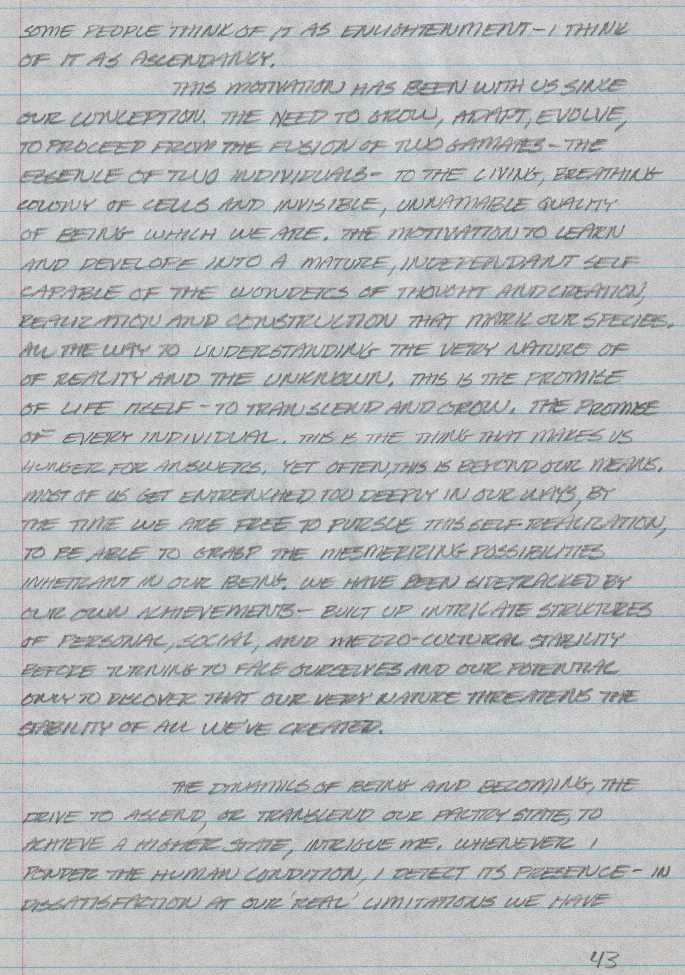 SOME PEOPLE THINK OF IT AS ENLIGHTENMENT - I THINK
OF IT AS ASCENDANCY.
THIS MOTIVATION HAS BEEN WITH US SINCE
OUR CONCEPTION. THE NEED TO GROW, ADAPT, EVOLVE,
TO PROCEED FROM THE FUSION OF TWO GAMATES - THE
ESSENCE OF TWO INDIVIDUALS - TO THE LIVING, BREATHING
COLONY OF CELLS AND INVISIBLE, UNNAMABLE QUALITY
OF BEING WHICH WE ARE. THE MOTIVATION TO LEARN
AND DEVELOPE INTO A MATURE, INDEPENDANT SELF
CAPABLE OF THE WONDERS OF THOUGHT AND CREATION,
REALIZATION AND CONSTRUCTION THAT MARK OUR SPECIES.
ALL THE WAY TO UNDERSTANDING THE VERY NATURE OF
OF REALITY AND THE UNKNOWN. THIS IS THE PROMISE
OF LIFE ITSELF - TO TRANSCEND AND GROW. THE PROMISE
OF EVERY INDIVIDUAL. THIS IS THE THING THAT MAKES US
HUNGER FOR ANSWERS. YET OFTEN, THIS IS BEYOND OUR MEANS.
MOST OF US GET ENTRENCHED TOO DEEPLY IN OUR WAYS, BY
THE TIME WE ARE FREE TO PURSUE THIS SELF REALIZATION,
TO BE ABLE TO GRASP THE MESMERIZING POSSIBILITIES
INHERANT IN OUR BEING. WE HAVE BEEN SIDETRACKED BY
OUR OWN ACHIEVEMENTS - BUILT UP INTRICATE STRUCTURES
OF PERSONAL, SOCIAL, AND MECRO-CULTURAL STABILITY
BEFORE TURNING TO FACE OURSELVES AND OUR POTENTIAL
ONLY TO DISCOVER THAT OUR VERY NATURE THREATENS THE
STABILITY OF ALL WE'VE CREATED.
THE DYNAMICS OF BEING AND BECOMING, THE
DRIVE TO ASCEND, OR TRANSCEND OUR PALTRY STATE, TO
ACHIEVE A HIGHER STATE, INTRIGUE ME. WHENEVER I
PONDER THE HUMAN CONDITION, I DETECT ITS PRESENCE - IN
DISSATISFACTION AT OUR 'REAL' LIMITATIONS WE HAVE
43